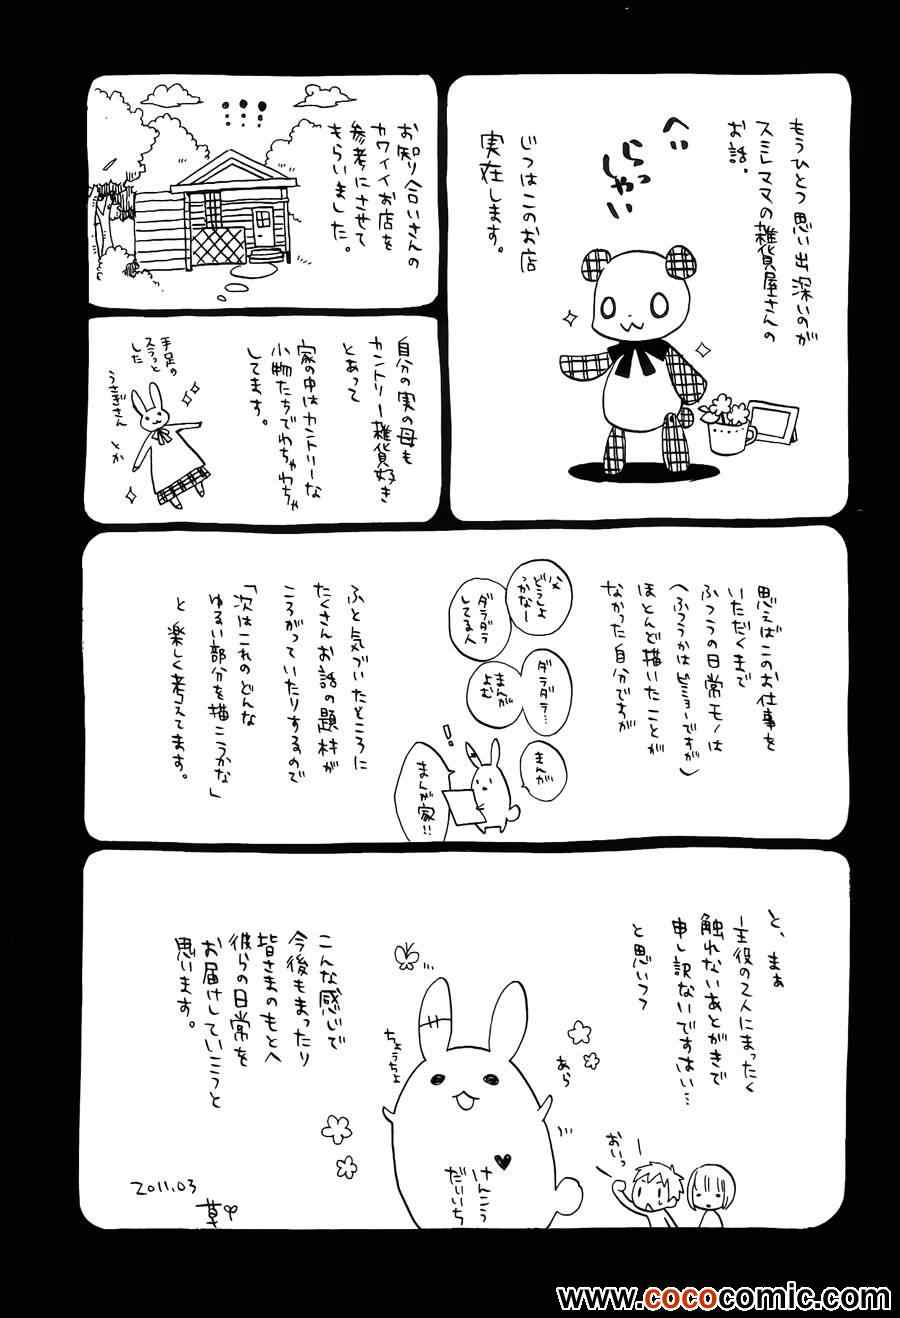 もうひとつ思い出深いのが
スミレママの雑貨屋さんの
お話。
へい
らっしゃい
じつはこのお店
実在します。
お知り合いさんの
カワイイお店を
参考にさせて
もらいました。
自分の実の母も
カントリー雑貨好き
とあって
家の中はカントリーな
小物たちでわちゃわちゃ
してます。
手足の
スラっと
した
うさぎさん
とか
思えばこのお仕事を
いただくまで
ふつうの日常モノは
(ふつうかはビミョーですが)
ほとんど描いたことが
なかった自分ですが
どうしよ
かなー
ダラダラ
してる人
ダラダラ…
まんが
よむ
まんが
!
まんが家!!
ふと気づいたところに
たくさんお話の題材が
ころがっていたりするので
「次はこれのどんな
ゆるい部分を描こうかな」
と楽しく考えてます。
と、まぁ
主役の2人にまったく
触れないあとがきで
申し訳ないですはい…
と思いつつ
おいっ
あら
ちょうちょ
けんこう
だいいち
こんな感じで
今後もまったり
皆さまのもとへ
彼らの日常を
お届けしていこうと
思います。
2011.03
草
www.cococomic.com